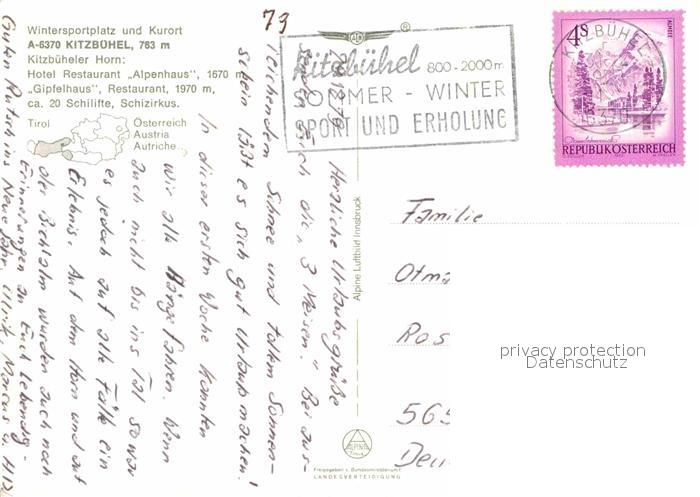 Wintersportplatz und Kurort
A-6370 KITZBÜHEL, 763 m
Kitzbüheler Horn:
Hotel Restaurant „Alpenhaus", 1670 m
„Gipfelhaus", Restaurant, 1970 m,
ca. 20 Schilifte, Schizirkus.
Tirol
Österreich
Austria
Autriche
73
Kitzbühel 800-2000m
SOMMER - WINTER
SPORT UND ERHOLUNG
KITZBÜHEL
4S
REPUBLIK ÖSTERREICH
Herzliche Urlaubsgrüße
senden Euch die „3 Meisen." Bei aus-
reichendem Schnee und tollem Sonnen-
schein läßt es sich gut Urlaub machen!
In dieser ersten Woche konnten
wir alle Hänge fahren. Wenn
auch nicht bis ins Tal so war
es jedoch auf alle Fälle ein
Erlebnis. Auf dem Horn und auf
der Bichlalm wurden auch noch
Erinnerungen an Euch lebendig.
Guten Rutsch ins Neue Jahr. Ulrik, Marcus u.
Alpine Luftbild Innsbruck
Familie
Otma
Ros
565
Deu
privacy protection
Datenschutz
ALPINE
Freigegeben v. Bundesministerium f.
LANDESVERTEIDIGUNG